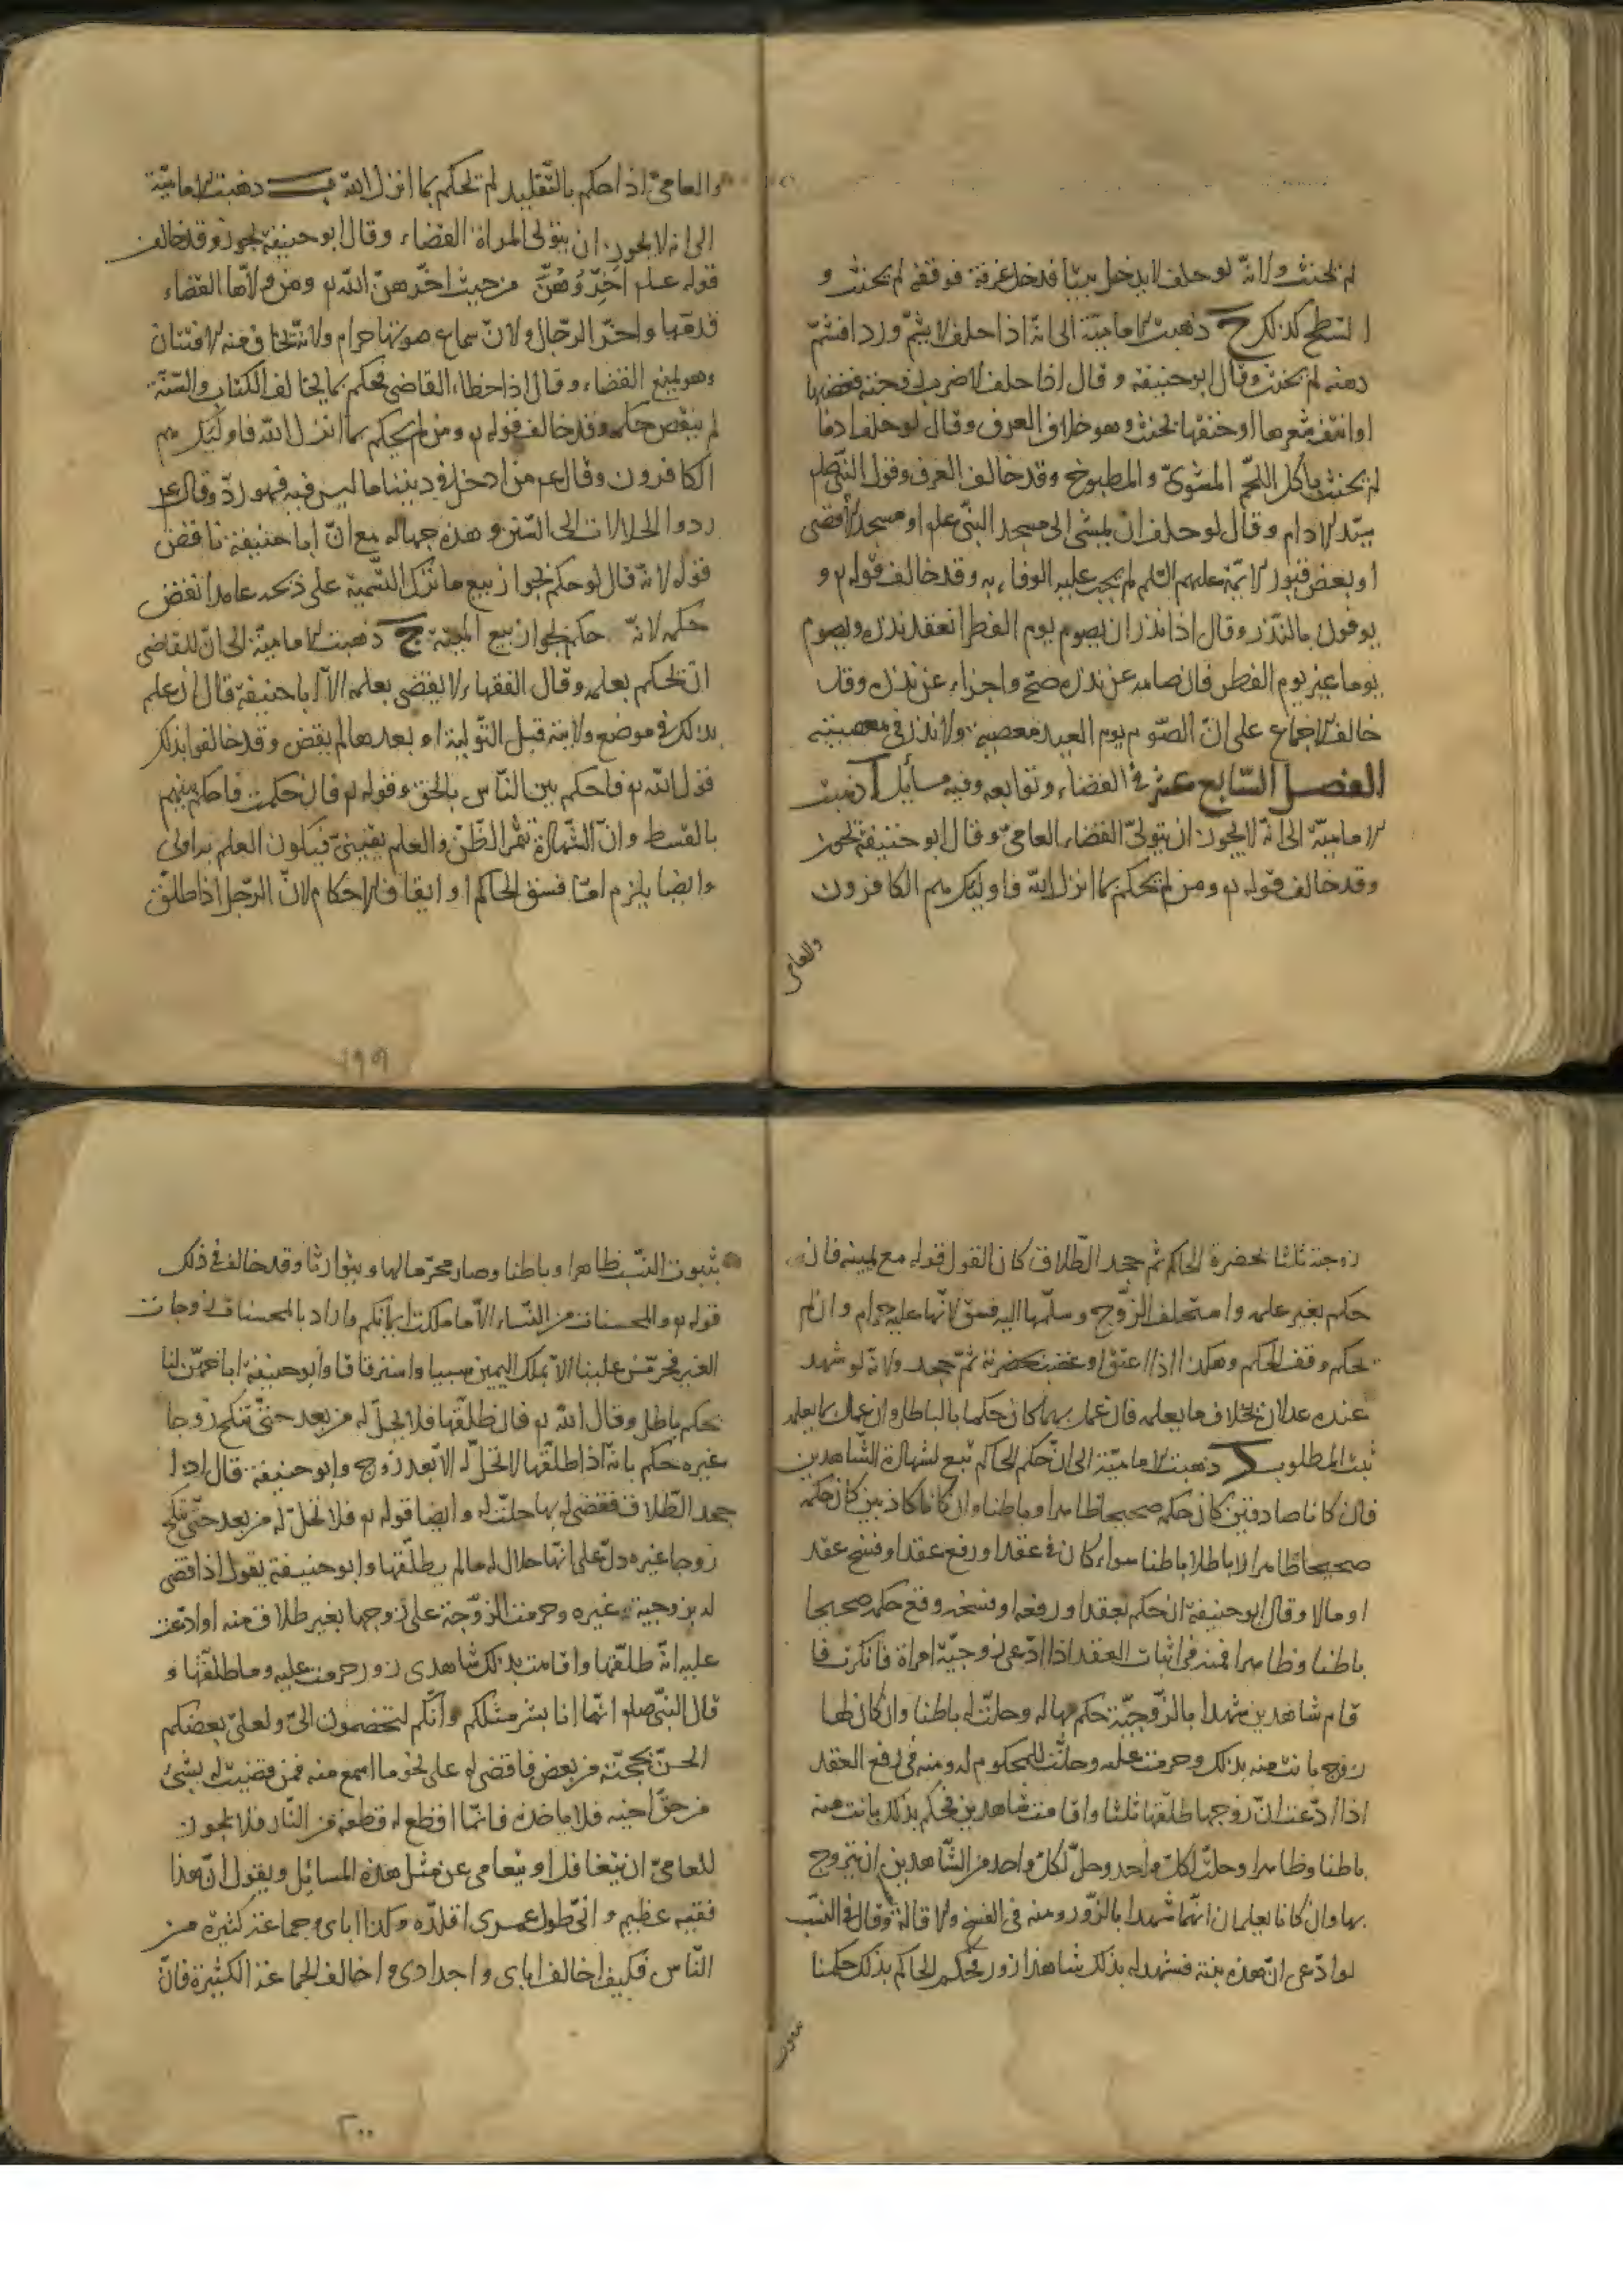 لم يحنث ولانه لو حلف لا يدخل بيتا فدخل غرفة فوقفه لم يحنث و
السطح كذلك ح ذهبت الامامية الى انه اذا حلف لا يشم وردا فشم
دهنه لم يحنث وقال ابو حنيفة وقال اذا حلف لا ضرب زوجته فعضها
او انتف شعرها او خنقها يحنث وهو خلاف العرف وقال لو حلف ادما
لم يحنث باكل اللحم المشوي والمطبوخ وقد خالف العرف وقول النبي صلم
سيد الادام وقال لو حلف ان يمشي الى مسجد النبي علم او مسجد الاقصى
او بعض قبور الائمة عليهم السلم لم يجب عليه الوفاء به وقد خالف قوله تع
يوفون بالنذر وقال اذا نذر ان يصوم يوم الفطر انعقد نذره ويصوم
يوما غير يوم الفطر فان صامه عن نذره صح واجزاه عن نذره وقد
خالف الاجماع على ان الصوم يوم العيد معصية ولا نذر في معصية
الفصل السابع عشر في القضاء وتوابعه وفيه مسايل ا ذهبت
الامامية الى انه لا يجوز ان يتولى القضاء العامي وقال ابو حنيفة يجوز
وقد خالف قوله تع ومن لم يحكم بما انزل الله فاوليك هم الكافرون
والعامي
والعامي اذا حكم بالتقليد لم يحكم بما انزل الله ب ذهبت الامامية
الى انه لا يجوز ان يتولى المراة القضاء وقال ابو حنيفة يجوز وقد خالف
قوله علم اخروهن من حيث اخرهن الله تع ومن ولاها القضاء
قدمها واخر الرجال ولان سماع صوتها حرام ولانه يخاف منه الافتتان
وهو يمنع القضاء وقال اذا اخطاء القاضي فحكم بما يخالف الكتاب والسنة
لم ينقض حكمه وقد خالف قوله تع ومن لم يحكم بما انزل الله فاوليك هم
الكافرون وقال عم من ادخل في ديننا ما ليس فيه فهو رد وقال عم
ردوا الجهالات الى السنن وهذه جهاله مع ان ابا حنيفة ناقض
قوله لانه قال لو حكم بجواز بيع ما ترك التسمية على ذبحه عامدا نقض
حكمه لانه حكم بجواز بيع الميتة ج ذهبت الامامية الى ان للقاضي
ان يحكم بعلمه وقال الفقهاء لا يقضى بعلمه الا ابا حنيفة قال ان علم
بذلك في موضع ولايته قبل التولية او بعدها لم يقض وقد خالفوا بذلك
قول الله تع فاحكم بين الناس بالحق وقوله تع فان حكمت فاحكم بينهم
بالقسط وان الشهادة تثمر الظن والعلم يقيني فيكون العلم به اولى
وايضا يلزم اما فسق الحاكم او ايقاف الاحكام لان الرجل اذا طلق
١٩٩
زوجته ثلثا بحضرة الحاكم ثم جحد الطلاق كان القول قوله مع يمينه فان
حكم بغير علمه واستحلف الزوج وسلمها اليه فسق لانها عليه حرام وان لم
يحكم وقف الحكم وهكذا اذا اعتق او غضب بحضرته ثم جحد ولانه لو شهد
عنده عدلان بخلاف ما يعلمه فان عمل بهما كان حكما بالباطل وان عمل بما يعلمه
ثبت المطلوب د ذهبت الامامية الى ان حكم الحاكم تبع لشهادة الشاهدين
فان كانا صادقين كان حكمه صحيحا ظاهرا وباطنا وان كانا كاذبين كان حكمه
صحيحا ظاهرا لا باطلا باطنا سواء كان في عقد او رفع عقد او فسخ عقد
او مالا وقال ابو حنيفة ان حكم بعقد او رفعه او فسخه وقع حكمه صحيحا
باطنا وظاهرا فمنه في اثبات العقد اذا ادعى زوجية امراة فانكرت فا
قام شاهدين شهدا بالزوجية حكم بها له وحلت له باطنا وان كان لها
زوج بانت منه بذلك وحرمت عليه وحلت للمحكوم له ومنه في رفع العقد
اذا ادعت ان زوجها طلقها ثلثا واقامت شاهدين فحكم بذلك بانت منه
باطنا وظاهرا وحلت لكل واحد وحل لكل واحد من الشاهدين ان يتزوج
بها وان كانا يعلمان انهما شهدا بالزور ومنه في الفسخ والاقالة وقال في النسب
لو ادعى ان هذه بنته فشهد له بذلك شاهدا زور فحكم الحاكم بذلك حكمنا
بثبوت
بثبوت النسب ظاهرا وباطنا وصار محرما لها ويتوارثا وقد خالف في ذلك
قوله تع والمحصنات من النساء الا ما ملكت ايمانكم واراد بالمحصنات زوجات
الغير فحرمن علينا الا بملك اليمين سبيا واسترقاقا وابو حنيفة اباحهن لنا
بحكم باطل وقال الله تع فان طلقها فلا تحل له من بعد حتى تنكح زوجا
غيره حكم بانه اذا طلقها لا تحل له الا بعد زوج وابو حنيفة قال اذا
جحد الطلاق فقضى له بها حلت له وايضا قوله تع فلا تحل له من بعد حتى تنكح
زوجا غيره دل على انها حلال له ما لم يطلقها وابو حنيفة يقول اذا قضى
له بزوجية غيره وحرمت الزوجة على زوجها بغير طلاق منه او ادعت
عليه انه طلقها واقامت بذلك شاهدي زور حرمت عليه وما طلقها و
قال النبي صلم انما انا بشر مثلكم وانكم لتختصمون الي ولعل بعضكم
الحن بحجته من بعض فاقضى له على نحو ما اسمع منه فمن قضيت له بشئ
من حق اخيه فلا ياخذه فانما اقطع له قطعة من النار فلا يجوز
للعامي ان يتغافل او يتعامى عن مثل هذه المسائل ويقول ان هذا
فقيه عظيم واني طول عمري اقلده وكذا اباي وجماعة كثيرة من
الناس فكيف اخالف اباي واجدادي واخالف الجماعة الكثيرة فان
٢٠٠